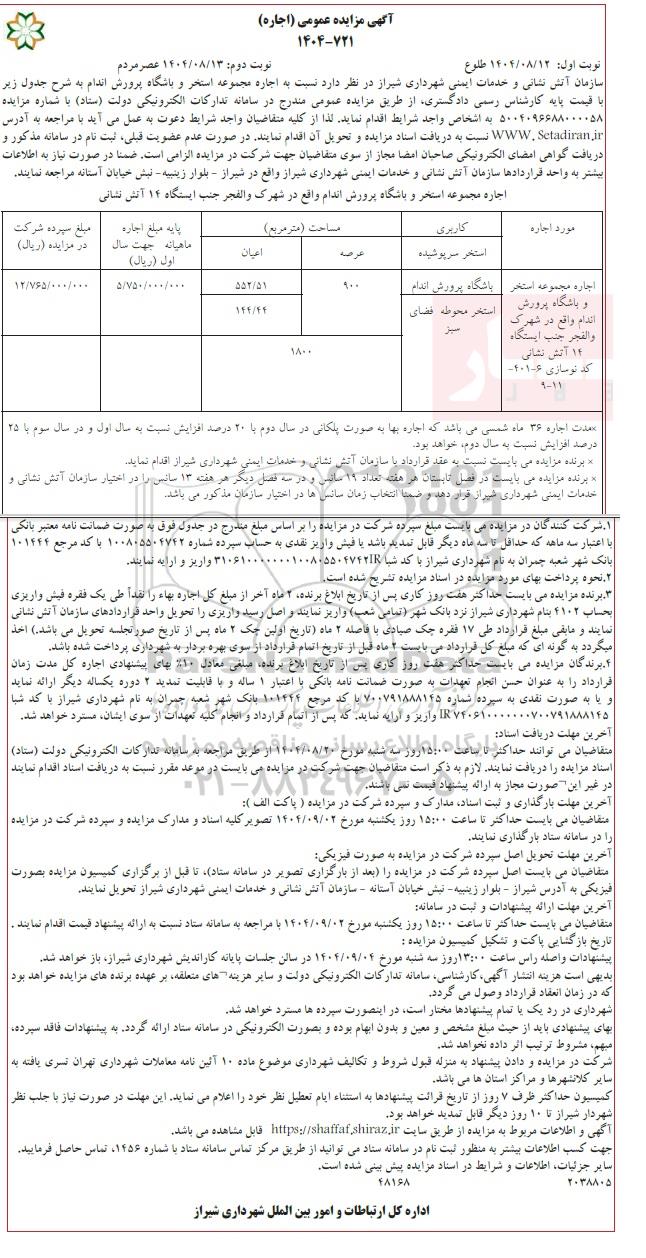 آگهی مزایده عمومی (اجاره)
۱۴۰۴-۷۲۱
نوبت اول: ۱۴۰۴/۰۸/۱۲ طلوع نوبت دوم: ۱۴۰۴/۰۸/۱۳ عصرمردم
سازمان آتش نشانی و خدمات ایمنی شهرداری شیراز در نظر دارد نسبت به اجاره مجموعه استخر و باشگاه پرورش اندام به شرح جدول زیر
با قیمت پایه کارشناس رسمی دادگستری، از طریق مزایده عمومی مندرج در سامانه تدارکات الکترونیکی دولت (ستاد) با شماره مزایده
۵۰۰۴۰۹۶۶۸۸۰۰۰۰۵۸ به اشخاص واجد شرایط اقدام نماید. لذا از کلیه متقاضیان واجد شرایط دعوت به عمل می آید با مراجعه به آدرس
WWW. Setadiran.ir نسبت به دریافت اسناد مزایده و تحویل آن اقدام نمایند. در صورت عدم عضویت قبلی، ثبت نام در سامانه مذکور و
دریافت گواهی امضای الکترونیکی صاحبان امضا مجاز از سوی متقاضیان جهت شرکت در مزایده الزامی است. ضمنا در صورت نیاز به اطلاعات
بیشتر به واحد قراردادها سازمان آتش نشانی و خدمات ایمنی شهرداری شیراز واقع در شیراز - بلوار زینبیه- نبش خیابان آستانه مراجعه نمایند.
اجاره مجموعه استخر و باشگاه پرورش اندام واقع در شهرک والفجر جنب ایستگاه ۱۴ آتش نشانی
مورد اجاره کاربری مساحت (مترمربع) پایه مبلغ اجاره ماهیانه جهت سال اول (ریال) مبلغ سپرده شرکت در مزایده (ریال)
استخر سرپوشیده عرصه اعیان
اجاره مجموعه استخر و باشگاه پرورش اندام واقع در شهرک والفجر جنب ایستگاه ۱۴ آتش نشانی
کد نوسازی ۶-۴۰۱-۱۱-۹
باشگاه پرورش اندام ۹۰۰ ۵۵۲/۵۱ ۵/۷۵۰/۰۰۰/۰۰۰ ۱۲/۷۶۵/۰۰۰/۰۰۰
استخر محوطه فضای سبز ۱۴۴/۴۴
۱۸۰۰
×مدت اجاره ۳۶ ماه شمسی می باشد که اجاره بها به صورت پلکانی در سال دوم با ۲۰ درصد افزایش نسبت به سال اول و در سال سوم با ۲۵
درصد افزایش نسبت به سال دوم، خواهد بود.
× برنده مزایده می بایست نسبت به عقد قرارداد با سازمان آتش نشانی و خدمات ایمنی شهرداری شیراز اقدام نماید.
× برنده مزایده می بایست در فصل تابستان هر هفته تعداد ۱۹ سانس و در سه فصل دیگر هر هفته ۱۳ سانس را در اختیار سازمان آتش نشانی و
خدمات ایمنی شهرداری شیراز قرار دهد و ضمنا انتخاب زمان سانس ها در اختیار سازمان مذکور می باشد.
۱.شرکت کنندگان در مزایده می بایست مبلغ سپرده شرکت در مزایده را بر اساس مبلغ مندرج در جدول فوق به صورت ضمانت نامه معتبر بانکی
با اعتبار سه ماهه که حداقل تا سه ماه دیگر قابل تمدید باشد یا فیش واریز نقدی به حساب سپرده شماره ۱۰۰۸۰۵۵۰۴۷۴۲ با کد مرجع ۱۰۱۴۴۴
بانک شهر شعبه چمران به نام شهرداری شیراز با کد شبا IR۳۱۰۶۱۰۰۰۰۰۰۰۱۰۰۸۰۵۵۰۴۷۴۲ واریز و ارایه نمایند.
۲.نحوه پرداخت بهای مورد مزایده در اسناد مزایده تشریح شده است.
۳.برنده مزایده می بایست حداکثر هفت روز کاری پس از تاریخ ابلاغ برنده، ۲ ماه آخر از مبلغ کل اجاره بهاء را نقداً طی یک فقره فیش واریزی
بحساب ۴۱۰۲ بنام شهرداری شیراز نزد بانک شهر (تمامی شعب) واریز نمایند و اصل رسید واریزی را تحویل واحد قراردادهای سازمان آتش نشانی
نمایند و مابقی مبلغ قرارداد طی ۱۷ فقره چک صیادی با فاصله ۲ ماه (تاریخ اولین چک ۲ ماه پس از تاریخ صورتجلسه تحویل می باشد.) اخذ
میگردد به گونه ای که مبلغ کل قرارداد می بایست ۲ ماه قبل از تاریخ اتمام قرارداد از سوی بهره بردار به شهرداری پرداخت شده باشد.
۴.برندگان مزایده می بایست حداکثر هفت روز کاری پس از تاریخ ابلاغ برنده، مبلغی معادل ۱۰٪ بهای پیشنهادی اجاره کل مدت زمان
قرارداد را به عنوان حسن انجام تعهدات به صورت ضمانت نامه بانکی با اعتبار ۱ ساله و با قابلیت تمدید ۲ دوره یکساله دیگر ارائه نماید
و یا به صورت نقدی به سپرده شماره ۷۰۰۷۹۱۸۸۸۱۴۵ با کد مرجع ۱۰۱۴۴۴ بانک شهر شعبه چمران به نام شهرداری شیراز با کد شبا
IR۷۴۰۶۱۰۰۰۰۰۰۰۷۰۰۷۹۱۸۸۸۱۴۵ واریز و ارایه نماید. که پس از اتمام قرارداد و انجام کلیه تعهدات از سوی ایشان، مسترد خواهد شد.
آخرین مهلت دریافت اسناد:
متقاضیان می توانند حداکثر تا ساعت ۱۵:۰۰روز سه شنبه مورخ ۱۴۰۴/۰۸/۲۰ از طریق مراجعه به سامانه تدارکات الکترونیکی دولت (ستاد)
اسناد مزایده را دریافت نمایند. لازم به ذکر است متقاضیان جهت شرکت در مزایده می بایست در موعد مقرر نسبت به دریافت اسناد اقدام نمایند
در غیر این¬صورت مجاز به ارائه پیشنهاد قیمت نمی باشند.
آخرین مهلت بارگذاری و ثبت اسناد، مدارک و سپرده شرکت در مزایده ( پاکت الف ):
متقاضیان می بایست حداکثر تا ساعت ۱۵:۰۰ روز یکشنبه مورخ ۱۴۰۴/۰۹/۰۲ تصویرکلیه اسناد و مدارک مزایده و سپرده شرکت در مزایده
را در سامانه ستاد بارگذاری نمایند.
آخرین مهلت تحویل اصل سپرده شرکت در مزایده به صورت فیزیکی:
متقاضیان می بایست اصل سپرده شرکت در مزایده را (بعد از بارگزاری تصویر در سامانه ستاد)، تا قبل از برگزاری کمیسیون مزایده بصورت
فیزیکی به آدرس شیراز - بلوار زینبیه- نبش خیابان آستانه - سازمان آتش نشانی و خدمات ایمنی شهرداری شیراز تحویل نمایند.
آخرین مهلت ارائه پیشنهادات و ثبت در سامانه:
متقاضیان می بایست حداکثر تا ساعت ۱۵:۰۰ روز یکشنبه مورخ ۱۴۰۴/۰۹/۰۲ با مراجعه به سامانه ستاد نسبت به ارائه پیشنهاد قیمت اقدام نمایند .
تاریخ بازگشایی پاکت و تشکیل کمیسیون مزایده :
پیشنهادات واصله راس ساعت ۱۳:۰۰روز سه شنبه مورخ ۱۴۰۴/۰۹/۰۴ در سالن جلسات پایانه کاراندیش شهرداری شیراز، باز خواهد شد.
بدیهی است هزینه انتشار آگهی،کارشناسی، سامانه تدارکات الکترونیکی دولت و سایر هزینه¬های متعلقه، بر عهده برنده های مزایده خواهد بود
که در زمان انعقاد قرارداد وصول می گردد.
شهرداری در رد یک یا تمام پیشنهادها مختار است، در اینصورت سپرده ها مسترد خواهد شد.
بهای پیشنهادی باید از حیث مبلغ مشخص و معین و بدون ابهام بوده و بصورت الکترونیکی در سامانه ستاد ارائه گردد. به پیشنهادات فاقد سپرده،
مبهم، مشروط ترتیب اثر داده نخواهد شد.
شرکت در مزایده و دادن پیشنهاد به منزله قبول شروط و تکالیف شهرداری موضوع ماده ۱۰ آئین نامه معاملات شهرداری تهران تسری یافته به
سایر کلانشهرها و مراکز استان ها می باشد.
کمیسیون حداکثر ظرف ۷ روز از تاریخ قرائت پیشنهادها به استثناء ایام تعطیل نظر خود را اعلام می نماید. این مهلت در صورت نیاز با جلب نظر
شهردار شیراز تا ۱۰ روز دیگر قابل تمدید خواهد بود.
آگهی و اطلاعات مربوط به مزایده از طریق سایت https://shaffaf.shiraz.ir قابل مشاهده می باشد.
جهت کسب اطلاعات بیشتر به منظور ثبت نام در سامانه ستاد می توانید از طریق مرکز تماس سامانه ستاد با شماره ۱۴۵۶، تماس حاصل فرمایید.
سایر جزئیات، اطلاعات و شرایط در اسناد مزایده پیش بینی شده است.
۲۰۳۸۸۰۵ ۴۸۱۶۸
اداره کل ارتباطات و امور بین الملل شهرداری شیراز